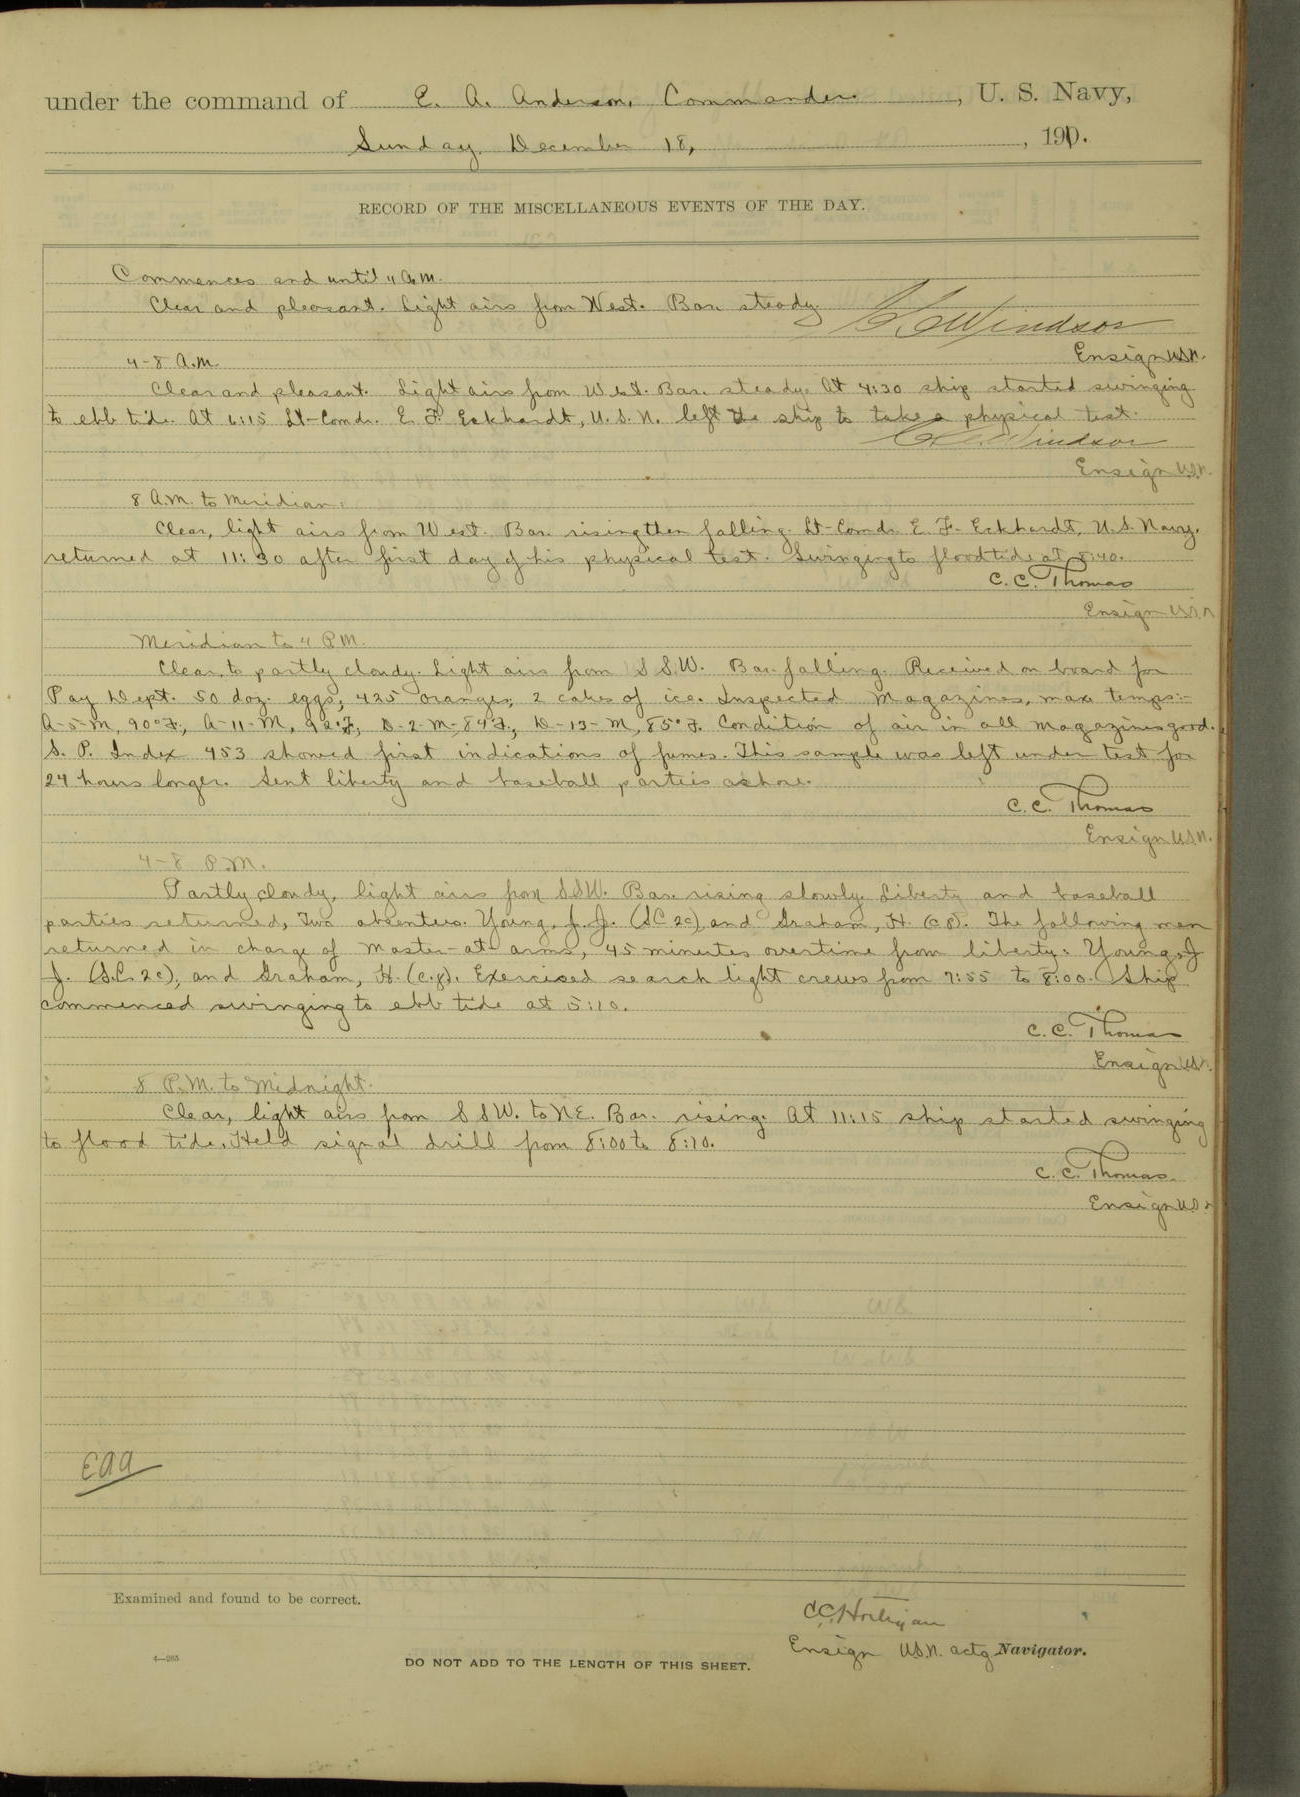 under the command of E. A. Anderson, Commander, U. S. Navy,
Sunday, December 18, 1910.
RECORD OF THE MISCELLANEOUS EVENTS OF THE DAY.
Commences and until 4 A.M.
Clear and pleasant. Light airs from West. Bar. steady.
Windsor
Ensign U.S.N.
4-8 A.M.
Clear and pleasant. Light airs from West. Bar. steady. At 4:30 ship started swinging
to ebb tide. At 6:15 Lt-Comdr. E. F. Eckhardt, U.S.N. left the ship to take a physical test.
Windsor
Ensign U.S.N.
8 A.M. to Meridian:
Clear, light airs from West. Bar. rising then falling. Lt-Comdr. E. F. Eckhardt, U.S. Navy.
returned at 11:30 after first day of his physical test. Swinging to flood tide at 8:40.
C. C. Thomas
Ensign U.S.N.
Meridian to 4 P.M.
Clear, to partly cloudy. Light airs from SSW. Bar. falling. Received on board for
Pay Dept. 50 doz. eggs; 425 oranges; 2 cakes of ice. Inspected Magazines, max temps:-
A-5-M, 90°F., A-11-M, 92°F., D-2-M, 84°F., D-13-M, 85°F. Condition of air in all magazines good.
S. P. Index 453 showed first indications of fumes. This sample was left under test for
24 hours longer. Sent liberty and baseball parties ashore.
C. C. Thomas
Ensign U.S.N.
4-8 P.M.
Partly cloudy, light airs from SSW. Bar. rising slowly. Liberty and baseball
parties returned, Two absentees. Young, J. J. (S.C. 2c), and Graham, H. (c.p). The following men
returned in charge of Master-at arms, 45 minutes overtime from liberty: Young, J.
J. (S.C. 2c), and Graham, H. (c.p). Exercised search light crews from 7:55 to 8:00. Ship
commenced swinging to ebb tide at 5:10.
C. C. Thomas
Ensign U.S.N.
8 P.M. to Midnight.
Clear, light airs from SSW. to NE. Bar. rising. At 11:15 ship started swinging
to flood tide. Held signal drill from 8:00 to 8:10.
C. C. Thomas.
Ensign U.S.N.
EAA
Examined and found to be correct.
Ensign U.S.N. actg Navigator.
4—265
DO NOT ADD TO THE LENGTH OF THIS SHEET.